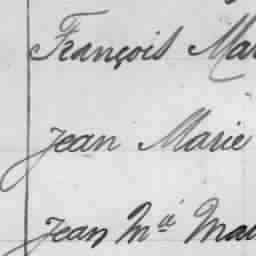 François Mar
Jean Marie
Jean Mª Mau